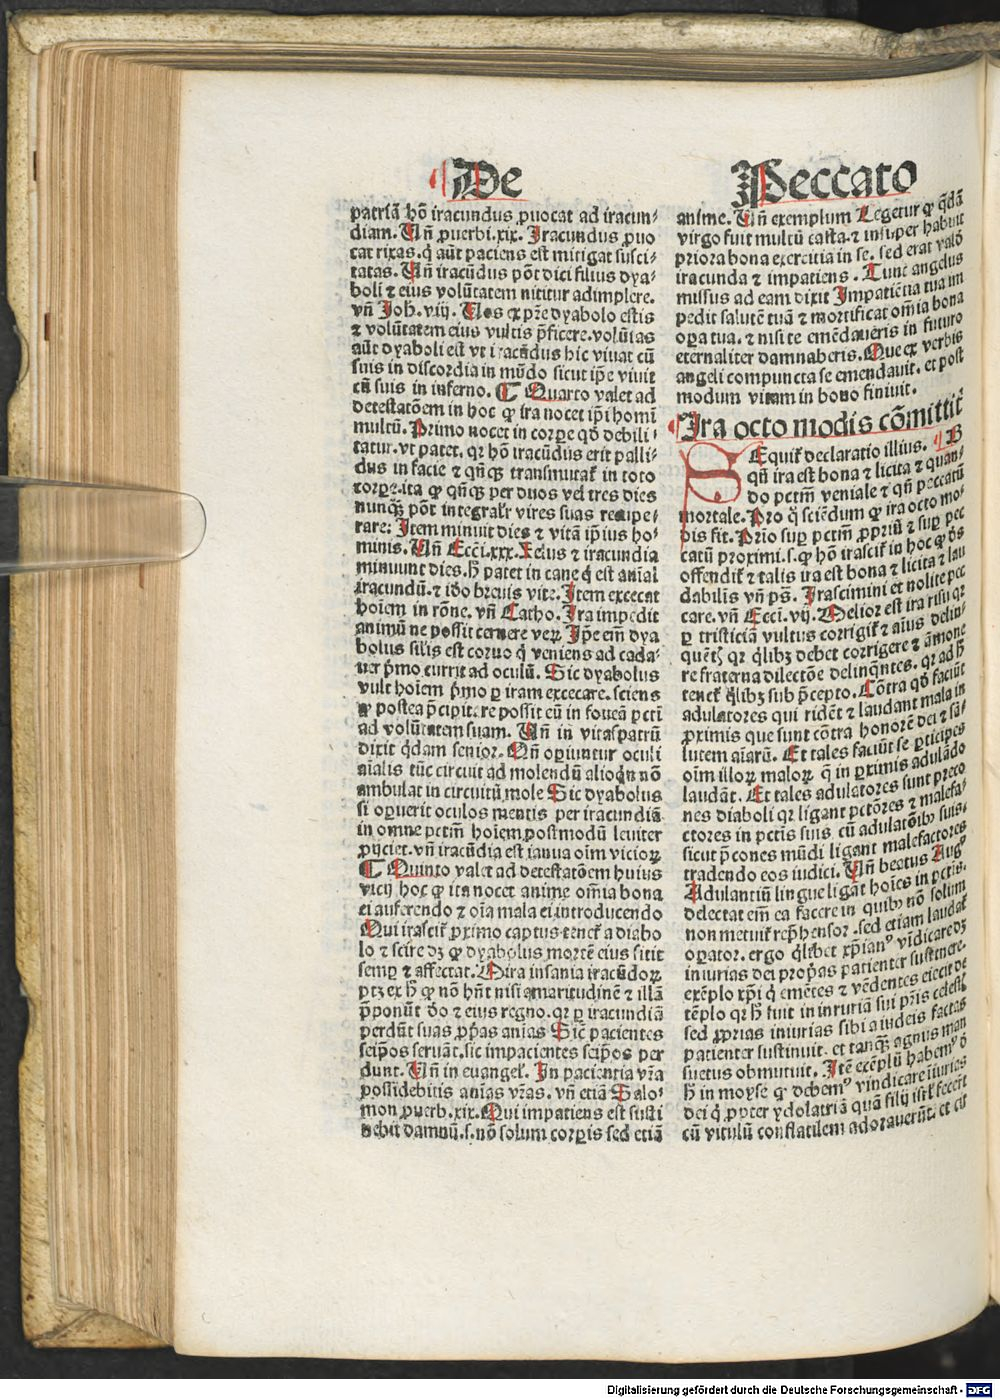 De
patriã hõ iracundus ꝓuocat ad iracun⸗
diam. Uñ ꝓuerbi.xix. Iracundus ꝓuo
cat rixas. q̇ aũt paciens est mitigat susci⸗
tatas. Uñ iracũdus põt dici filius dya⸗
boli ⁊ eius volũtatem nititur adimplere.
vñ Joh. viij. Uos ex pr̃e dyabolo estis
⁊ volũtatem eius vultis ꝑficere. volũtas
aũt dyaboli est vt iracũdus hic viuat cũ
suis in discordia in mũdo sicut ip̃e viuit
cũ suis in inferno. ¶ Quarto valet ad
detestatõem in hoc ꝙ ira nocet ip̃i homĩ
multũ. Primo nocet in corꝑe qď debili⸗
tatur. vt patet. qꝛ hõ iracũdus erit palli⸗
dus in facie ⁊ qñqꝫ transmutat᷑ in toto
corꝑe. ita ꝙ qñqꝫ per duos vel tres dies
nunqꝫ põt integralr̃ vires suas recuꝑe⸗
rare: Item minuit dies ⁊ vitã ip̃ius ho⸗
minis. Uñ Ecc̃i.xxx. Zelus ⁊ iracundia
minuunt dies. h̃ patet in cane q̇ est anĩal
iracundũ. ⁊ iď̃o breuis vite. Item excecat
hoĩem in rõne. vñ Catho. Ira impedit
animũ ne possit cernere veꝝ. Ip̃e em̃ dya
bolus sil̃is est coruo q̇ veniens ad cada⸗
uer p̃mo currit ad oculũ. Sic dyabolus
vult hoĩem p̃mo ꝑ iram excecare. sciens
ꝙ postea p̃cipitare possit eũ in foueã pcc̃ti
ad volũtatem suam. Uñ in vitaspatrũ
dixit q̇dam senior. Qñ oꝑiuntur oculi
aĩalis tũc circuit ad molendũ alioq̇n nõ
ambulat in circuitũ mole Sic dyabolus
si oꝑuerit oculos mentis per iracundiã
in omne pctm̃ hoĩem postmodũ leuiter
ꝓijciet. vñ iracũdia est ianua oĩm vicioꝝ
¶ Quinto valet ad detestatõem huius
vicij hoc ꝙ ira nocet anime om̃ia bona
ei auferendo ⁊ oĩa mala ei introducendo
Qui irascit᷑ ꝓximo captus tenet᷑ a diabo
lo ⁊ scire dꝫ ꝙ dyabolus mortẽ eius sitit
semꝑ ⁊ affectat. Mira insania iracũdoꝝ
ptꝫ ex h̃ ꝙ nõ hñt nisi amaritudinẽ ⁊ illã
p̃ponũt ďo ⁊ eius regno. qꝛ ꝑ iracundiã
perdũt suas ꝓp̃as anĩas Sic̃ pacientes
seip̃os seruãt. sic impacientes seip̃os per
dunt. Uñ in euangel̃. In pacientia vr̃a
possidebitis anĩas vr̃as. vñ etiã Salo⸗
mon ꝓuerb.xix. Qui impatiens est susti
nebit damnũ. s. nõ solum corꝑis sed etiã
Peccato
anime. Uñ exemplum Legetur ꝙ q̇dã
virgo fuit multũ casta. ⁊ insuper habuit
priora bona exercitia in se. sed erat valď
iracunda ⁊ impatiens. Tunc angelus
missus ad eam dixit Impatiẽtia tua im
pedit salutẽ tuã ⁊ mortificat om̃ia bona
oꝑa tua. ⁊ nisi te emẽdaueris in futuro
eternaliter damnaberis. Que ex verbis
angeli compuncta se emendauit. et post
modum vitam in bono finiuit.
Ira octo modis cõmittit᷑
SEquit᷑ declaratio illius. ¶ B
qñ ira est bona ⁊ licita ⁊ quan⸗
do pctm̃ veniale ⁊ qñ peccatũ
mortale. Pro q̊ sciẽdum ꝙ ira octo mo⸗
dis fit. Prĩo suꝑ pctm̃ ꝓpriũ ⁊ suꝑ pec
catũ proximi. s. ꝙ hõ irascit᷑ in hoc ꝙ ďs
offendit᷑ ⁊ talis ira est bona ⁊ licita ⁊ lau
dabilis vñ ps̃. Irascimini et nolite pec
care. vñ Ecc̃i. vij. Melior est ira risu qꝛ
ꝑ tristiciã vultus corrigit᷑ aĩus delin⸗
quẽtꝭ qꝛ q̇libꝫ debet corrigere ⁊ ãmone
re fraterna dilectõe delinq̃ntes. qꝛ ad h̃
tenet᷑ q̇libꝫ sub p̃cepto. Cõtra qď faciũt
adulatores qui ridẽt ⁊ laudant mala in
ꝓximis que sunt cõtra honorẽ dei ⁊ sã⸗
lutem aĩarũ. Et tales faciũt se ꝑticipes
oĩm illoꝝ maloꝝ q̃ in ꝓximis adulãdo
laudãt. Et tales adulatores sunt preco
nes diaboli qꝛ ligant pctõres ⁊ malefa⸗
ctores in pctĩs suis cũ adulatõibꝰ suis.
sicut p̃cones mũdi ligant malefactores
tradendo eos iudici. Uñ beatus Augꝰ
Adulantiũ lingue ligãt hoĩes in pctĩs.
delectat em̃ ea facere in quibꝰ nõ solum
non metuit᷑ rep̃hensor. sed etiam laudat᷑
oꝑator. ergo q̇libet xp̃ianꝰ vĩdicare dꝫ
iniurias dei prop̃as patienter sustinere.
exẽplo xp̃i q̇ emẽtes ⁊ vẽdentes eiecit de
tẽplo qꝛ h̃ fuit in iniuriã sui pr̃is celestꝭ
sed ꝓprias iniurias sibi a iudeis factas
patienter sustinuit. et tanqꝫ agnus man
suetus obmutuit. Itẽ exẽplũ habemꝰ ď
h̃ in moyse ꝙ debemꝰ vindicare iniurias
dei q̇ ꝓpter ydolatriã quã filij isrl̃ fecerũt
cũ vitulũ conflatilem adorauerũt. et cũ
Digitalisierung gefördert durch die Deutsche Forschungsgemeinschaft - DFG